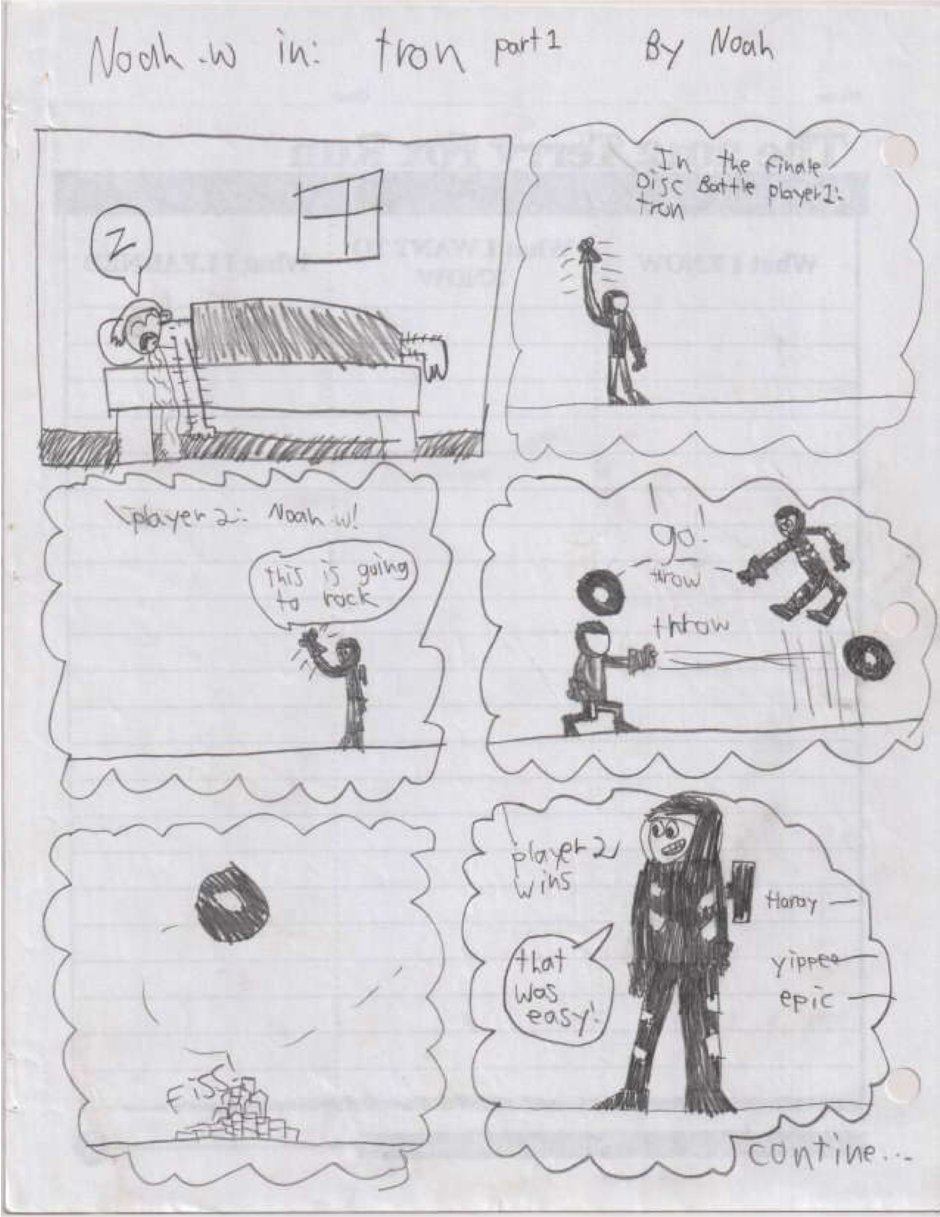 Noah .w in: tron part 1 By Noah
Z
In the Finale
Disc Battle player 1:
tron
player 2: Noah w!
this is going
to rock
go!
throw
throw
Fiss!
player 2
wins
that
was
easy!
Horay
yippee
epic
contine...